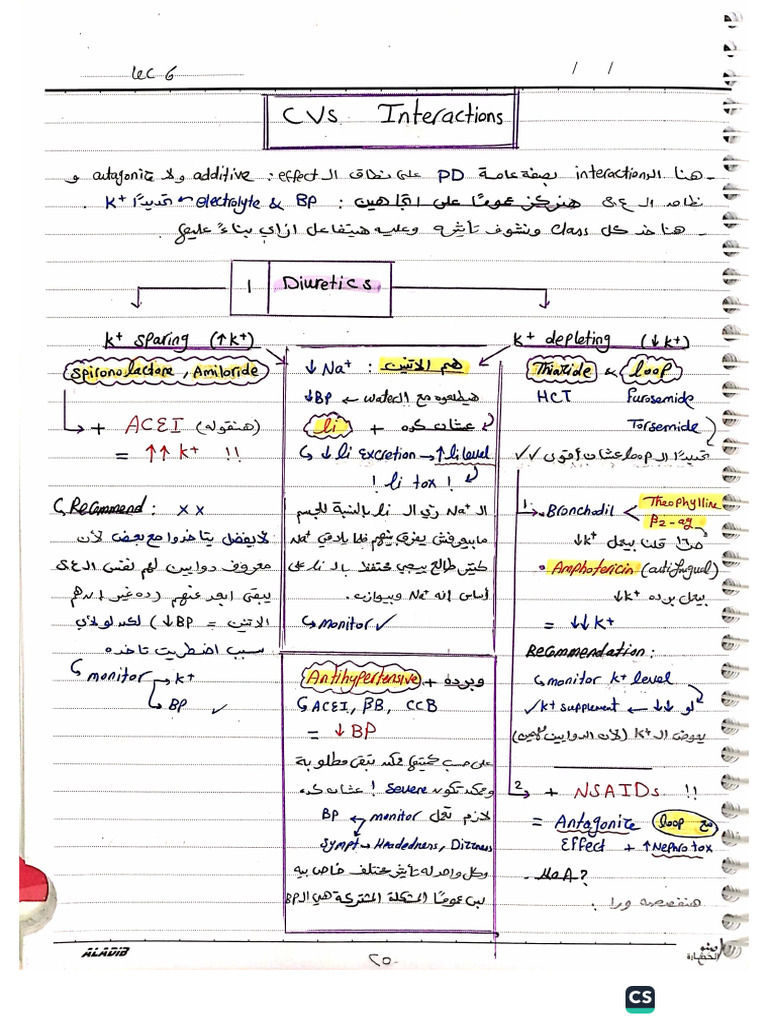 Lec 6
/ /
CVs Interactions
- هنا الـ interactions بصفة عامة PD على نطاق الـ effect : additive ولا antagonize و
نظام الـ عيان هنركز عمومًا على اتجاهين : BP & electrolyte تحديدًا K+ .
- هناخد كل class ونشوف تأثيره وعليه هيتفاعل ازاي بناءً عليهم
1 Diuretics
K+ sparing (↑K+)
Spironolactone, Amiloride
+ ACEI (هنقوله)
= ↑↑ K+ !!
Recommend : x x
لا يفضل يتاخدوا مع بعض لأن
معروف دوايين لهم نفس الـ
يبقى ابعد عنهم (ده غير ان هم
الاتنين = ↓BP) لكن لو لأي
سبب اضطريت تاخده
monitor → K+
→ BP ✓
هم الاتنين : ↓ Na+
هيطلعوه مع الـ water ← ↓BP
عشان كده + li
↓ li Excretion → ↑ li level
! li tox !
الـ Na+ زي الـ li بالنسبة للجسم
مابيعرفش يفرق بينهم فلما يلاقي Na+
كتير طالع بيجي محتفظ بالـ li على
أساس إنه Na+ وبيوازن.
monitor ✓
وبرده + Antihypertensive
ACEI, βB, CCB
= ↓ BP
على حسب كميتها ممكن تبقى مطلوبة
وممكن تكون severe ! عشان كده
لازم تعمل monitor BP
Sympt → Headedness, Dizzness
وكل واحد له تأثير مختلف خاص بيه
بس عمومًا المشكلة المشتركة هي الـ BP
K+ depleting (↓K+)
Thiazide & loop
HCT Furosemide
Torsemide
تحديدًا الـ loop عشان أقوى ✓✓
1. Bronchodil < Theophylline
β2-ag
قلنا بيعمل ↓K+
• Amphotericin (antifungal)
بيعمل برده ↓K+
= ↓↓ K+
Recommendation :
monitor K+ level
لو ↓↓ → K+ supplement ✓
يعوض الـ K+ (لأن الدوايين مهمين)
2 + NSAIDs !!
= Antagonize مع loop
Effect + ↑ Nephrotox
- MoA?
هنفصصه ورا .
ALADIB
٢٥
الحضارة
CS